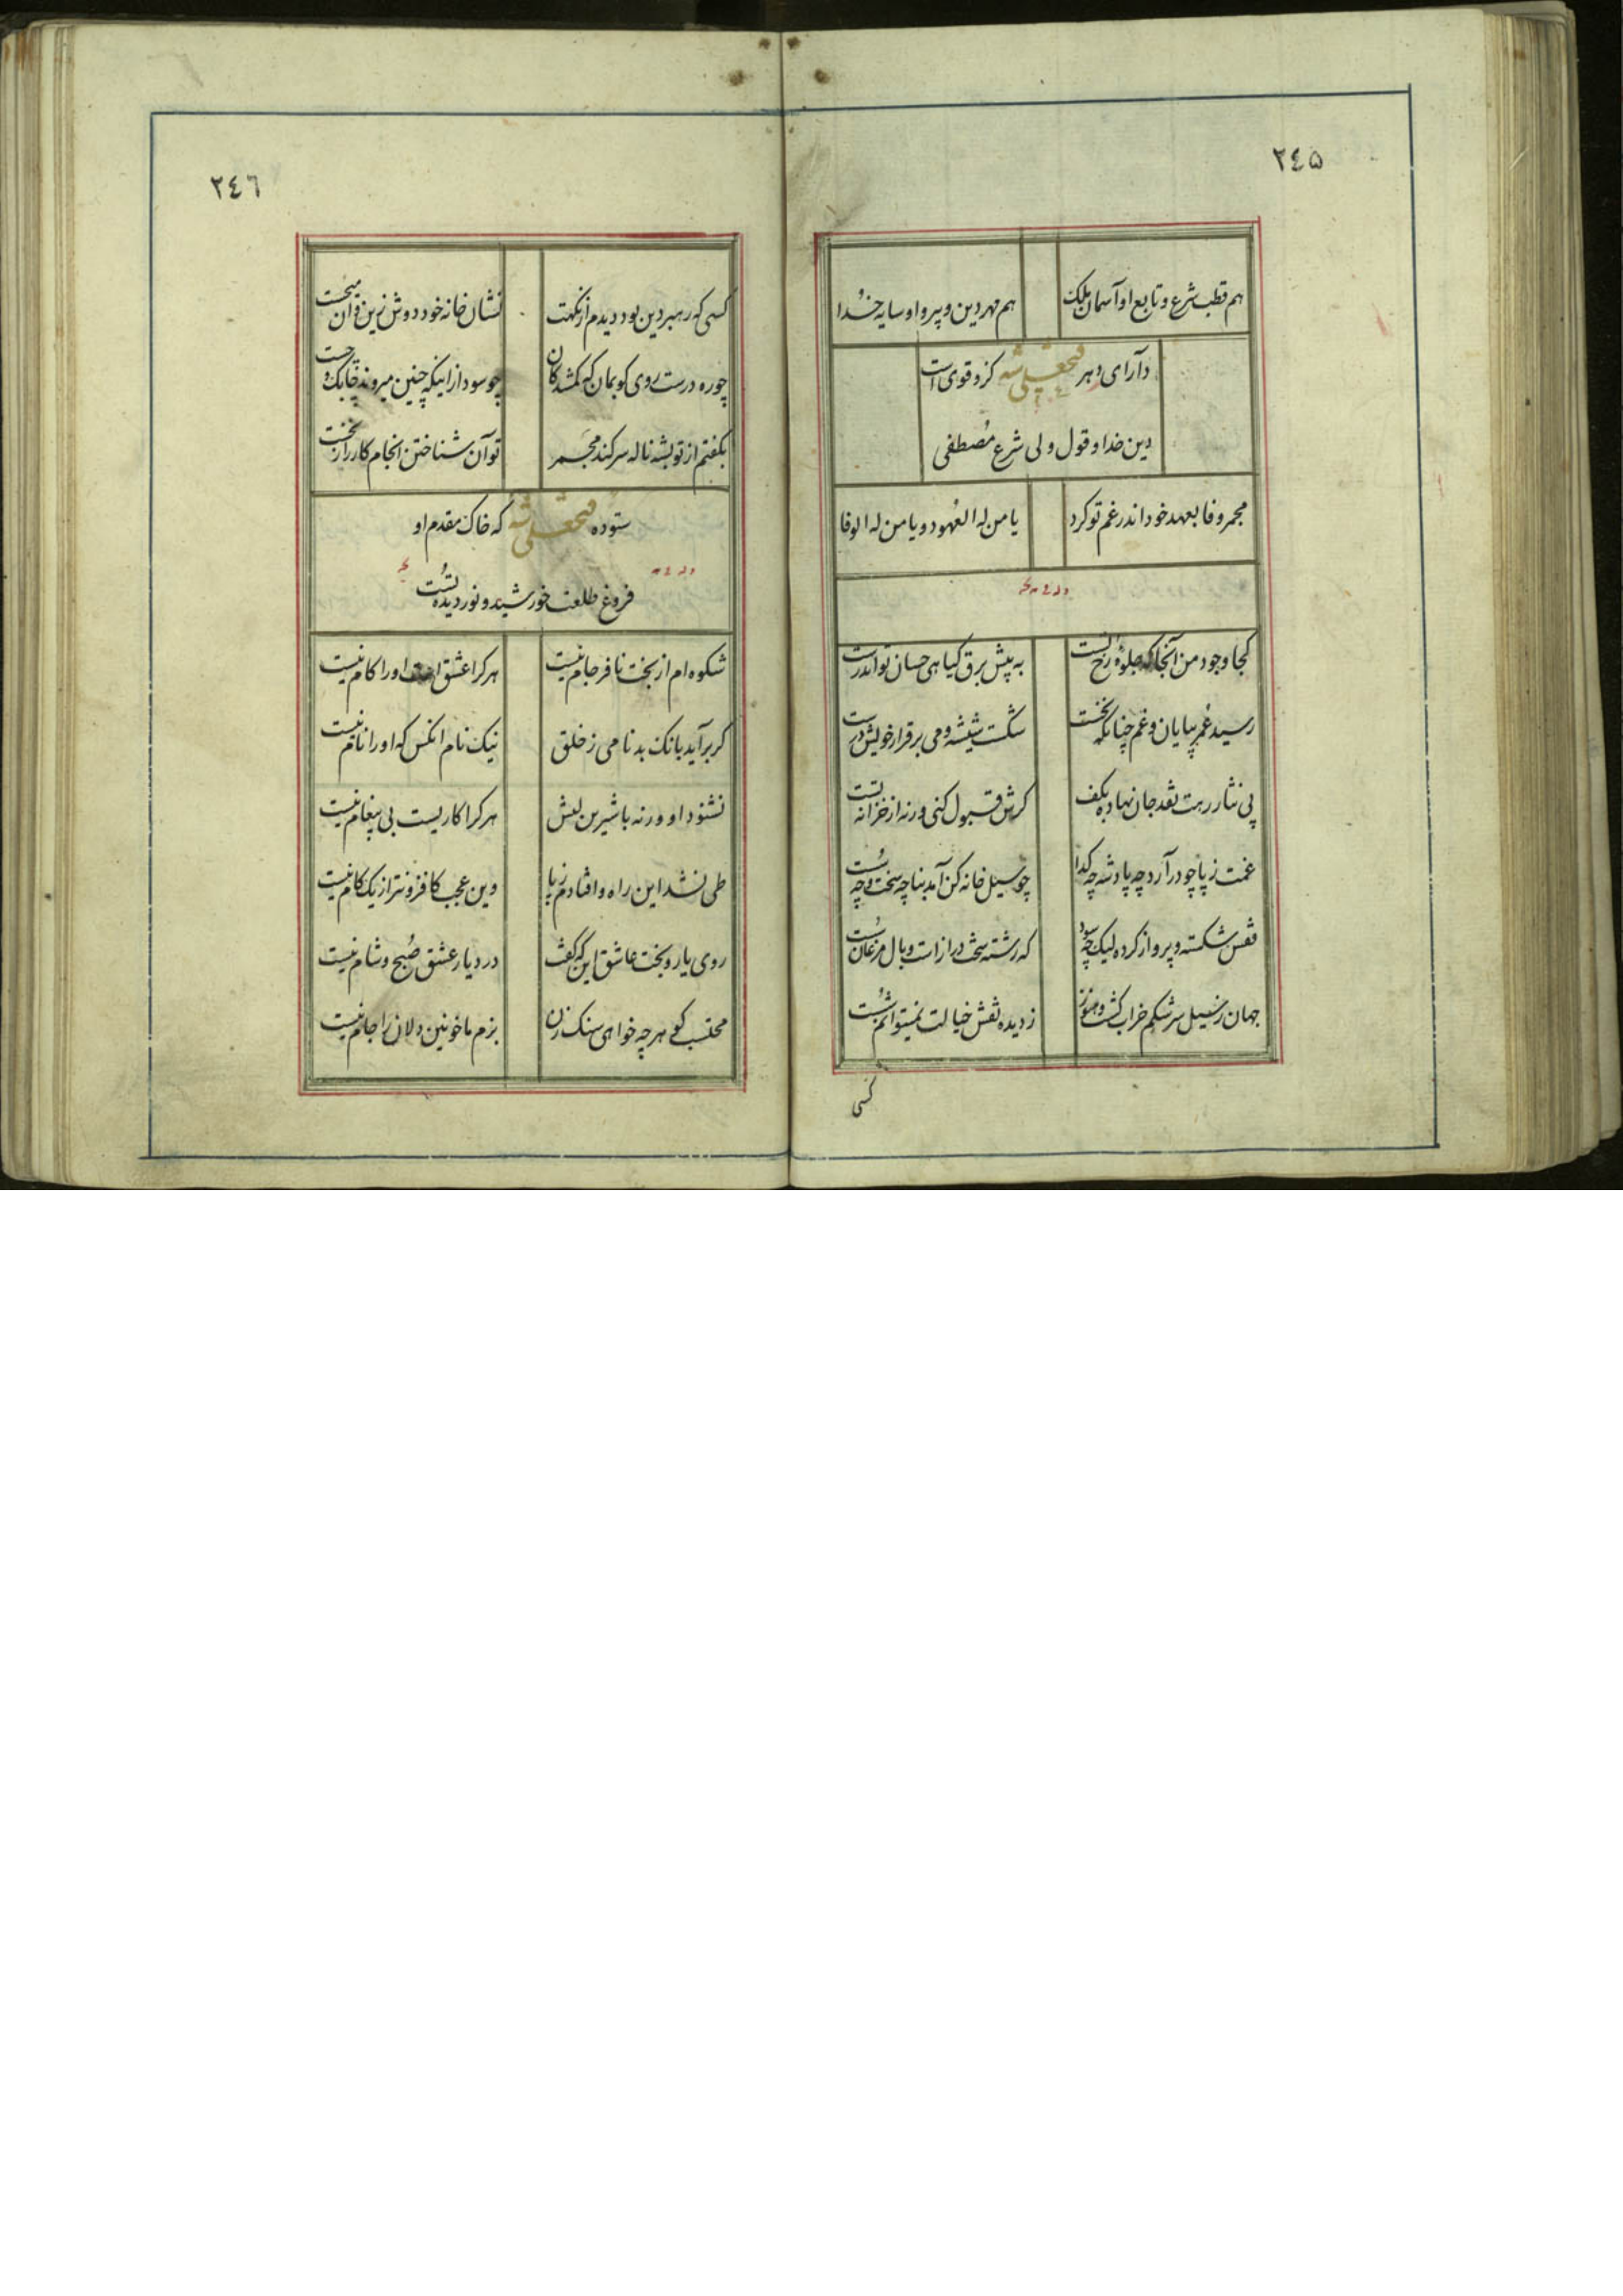 ٢٤٥
هم قطب شرع و تابع او آسمان ملک هم مهر دین و پیرو او سایه خدا
دآرای دهر فتحعلی شه کزو قوی است
دین خدا و قول ولی شرع مصطفی
مجمر وفا بعهد خود اندر غم تو کرد یا من له العهود و یا من له الوفا
وله
کجا وجود من آنجا که جلوهٔ رخ تست به پیش برق کیاهی چسان تواند رست
رسید عمر بپایان و غم چنانکه نخست شکست شیشه و می برقرار خویش درست
پی نثار رهت نقد جان نهاده بکف کرش قبول کنی ورنه از خزانه تست
غمت ز پا چو درآرد چه پادشه چه کدا چو سیل خانه کن آمد بنا چه سخت و چه سست
قفس شکسته و پرواز کرده لیک چه سود که رشته سخت دراز است و بال مرغان سست
جهان ز سیل سرشکم خراب کشت و هنوز ز دیده نقش خیالت نمیتوانم شست
کسی
٢٤٦
کسی که رهبر دین بود دیدم از نکهت نشان خانه خود دوش زین و آن میجست
چو ره درست روی کو بمان که کمشدکان چو سود ازانیکه چنین میروند چابک و چست
بکفتم از تو بشه ناله سر کند مجمر توان شناختن انجام کار را ز نخست
ستوده فتحعلی شه که خاک مقدم او
فروغ طلعت خورشید و نور دیده تست
وله
شکوه ام از بخت نافرجام نیست هر کرا عشق است او را کام نیست
کر برآید بانک بدنامی ز خلق نیک نام انکس که او را نام نیست
نشنود او ورنه با شیرین لبش هر کرا کاریست بی پیغام نیست
طی نشد این راه و افتادم ز پا وین عجب کافزونتر از یک کام نیست
روی یار و بخت عاشق این که کفت در دیار عشق صبح و شام نیست
محتسب کو هر چه خواهی سنک زن بزم ما خونین دلان را جام نیست